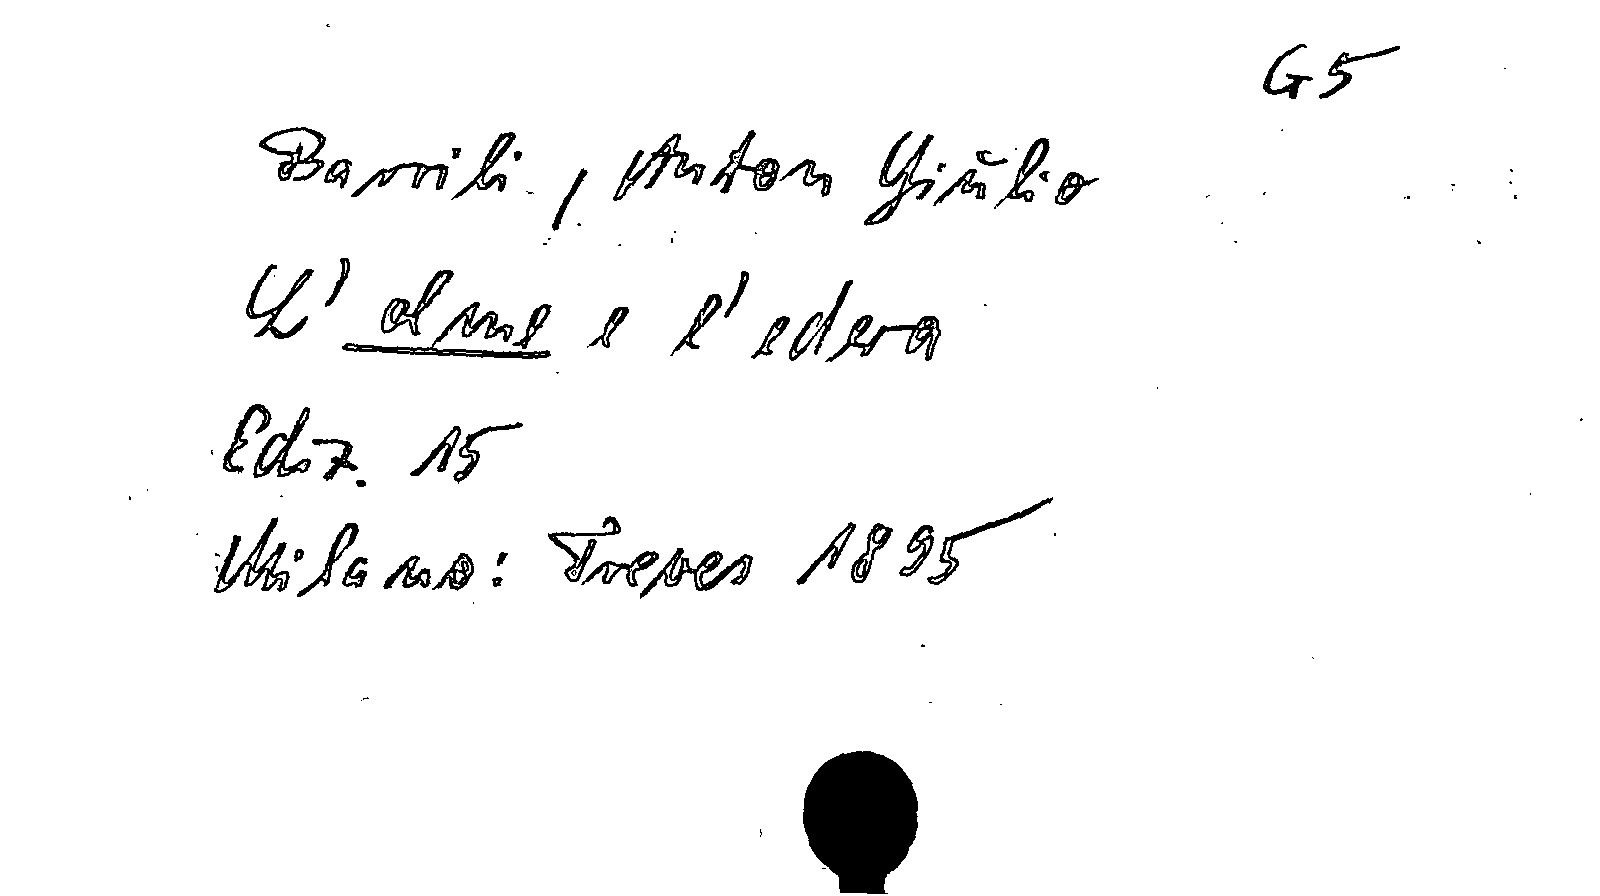 G5
Barrili, Anton Giulio
L' olmo e l' edera
Ediz. 15
Milano: Treves 1895